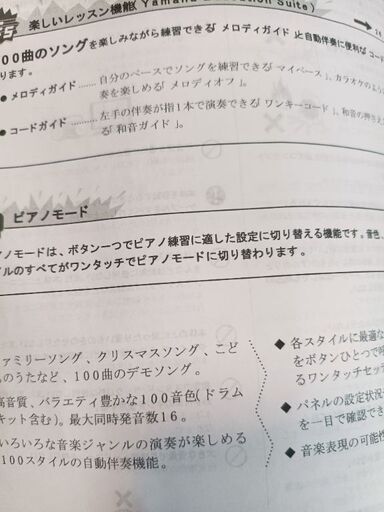 楽しいレッスン機能(Yamaha Education Suite)
00曲のソングを楽しみながら練習できる「メロディガイド」と自動伴奏に便利な「コード
ります。
● メロディガイド……自分のペースでソングを練習できる「マイペース」、カラオケのように
奏を楽しめる「メロディオフ」。
● コードガイド……左手の伴奏が指1本で演奏できる「ワンキーコード」、和音の押さえ
る「和音ガイド」。
ピアノモード
アノモードは、ボタン一つでピアノ練習に適した設定に切り替える機能です。音色、
イルのすべてがワンタッチでピアノモードに切り替わります。
ァミリーソング、クリスマスソング、こど
ものうたなど、100曲のデモソング。
高音質、バラエティ豊かな100音色(ドラム
キット含む)。最大同時発音数16。
いろいろな音楽ジャンルの演奏が楽しめる
100スタイルの自動伴奏機能。
◆ 各スタイルに最適な
をボタンひとつで呼
るワンタッチセッテ
◆ パネルの設定状況
を一目で確認でき
◆ 音楽表現の可能性